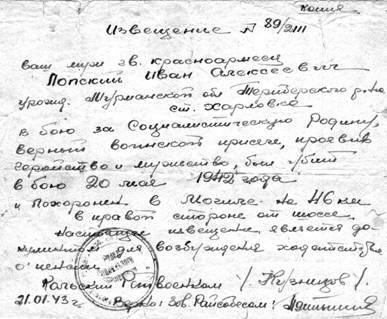 копия
Извещение N 89/2III
ваш муж зв. красноармеец
Попский Иван Алексеевич
урожд. Мурманской обл Териберского р-на
ст. Харловка
в бою за Социалистическую Родину,
верный воинской присяге, проявив
геройство и мужество, был убит
в бою 20 мая 1942 года
и похоронен в могиле на 46 км
в правой стороне от шоссе.
Настоящее извещение является до-
кументом для возбуждения ходатайства
о пенсии.
Кольский Райвоенком /Кузнецов/.
21.01.43 г. Верно: Зав. Райсобесом: